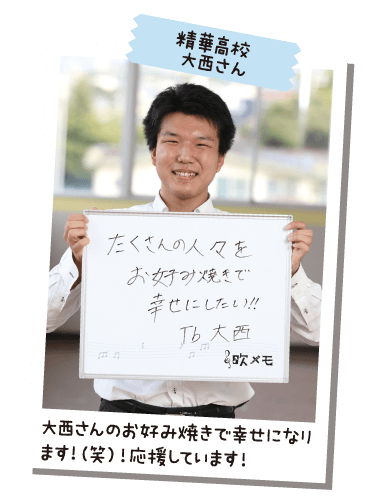 精華高校
大西さん
たくさんの人々を
お好み焼きで
幸せにしたい!!
Tb 大西
吹メモ
大西さんのお好み焼きで幸せになり
ます!(笑)!応援しています!